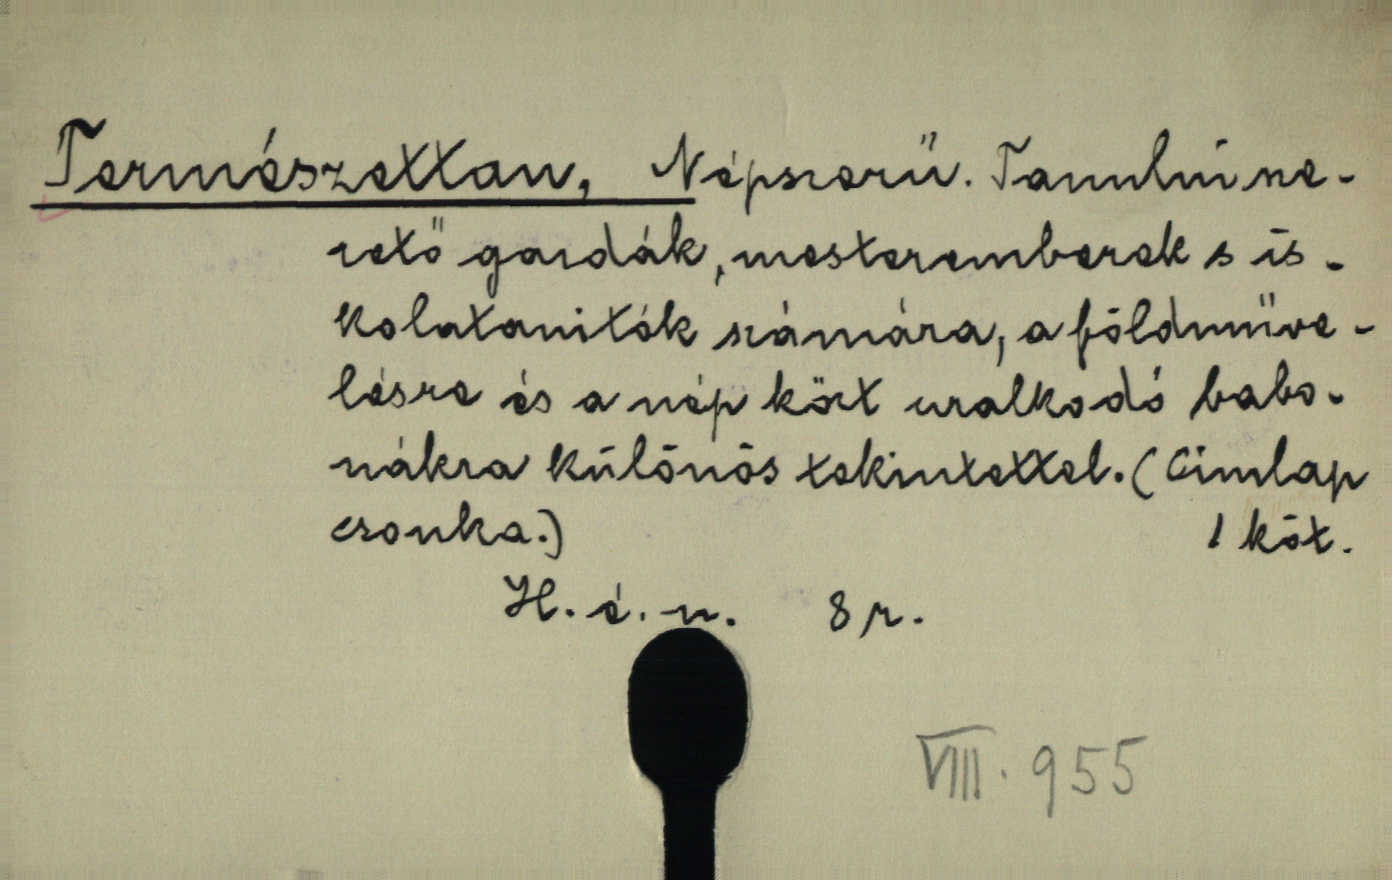 Természettan, Népszerű. Tanulni sze-
rető gazdák, mesteremberek s is-
kolatanitók számára, a földmüve-
lésre és a nép közt uralkodó babo-
nákra különös tekintettel. (Cimlap
csonka.) 1 köt.
H. é. n. 8 r.
VIII. 955